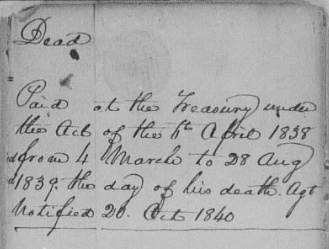 Dead
Paid at the Treasury under
the Act of the 6th April 1838
from 4 March to 28 Aug
1839. the day of his death. Agt
Notified 20. Oct 1840